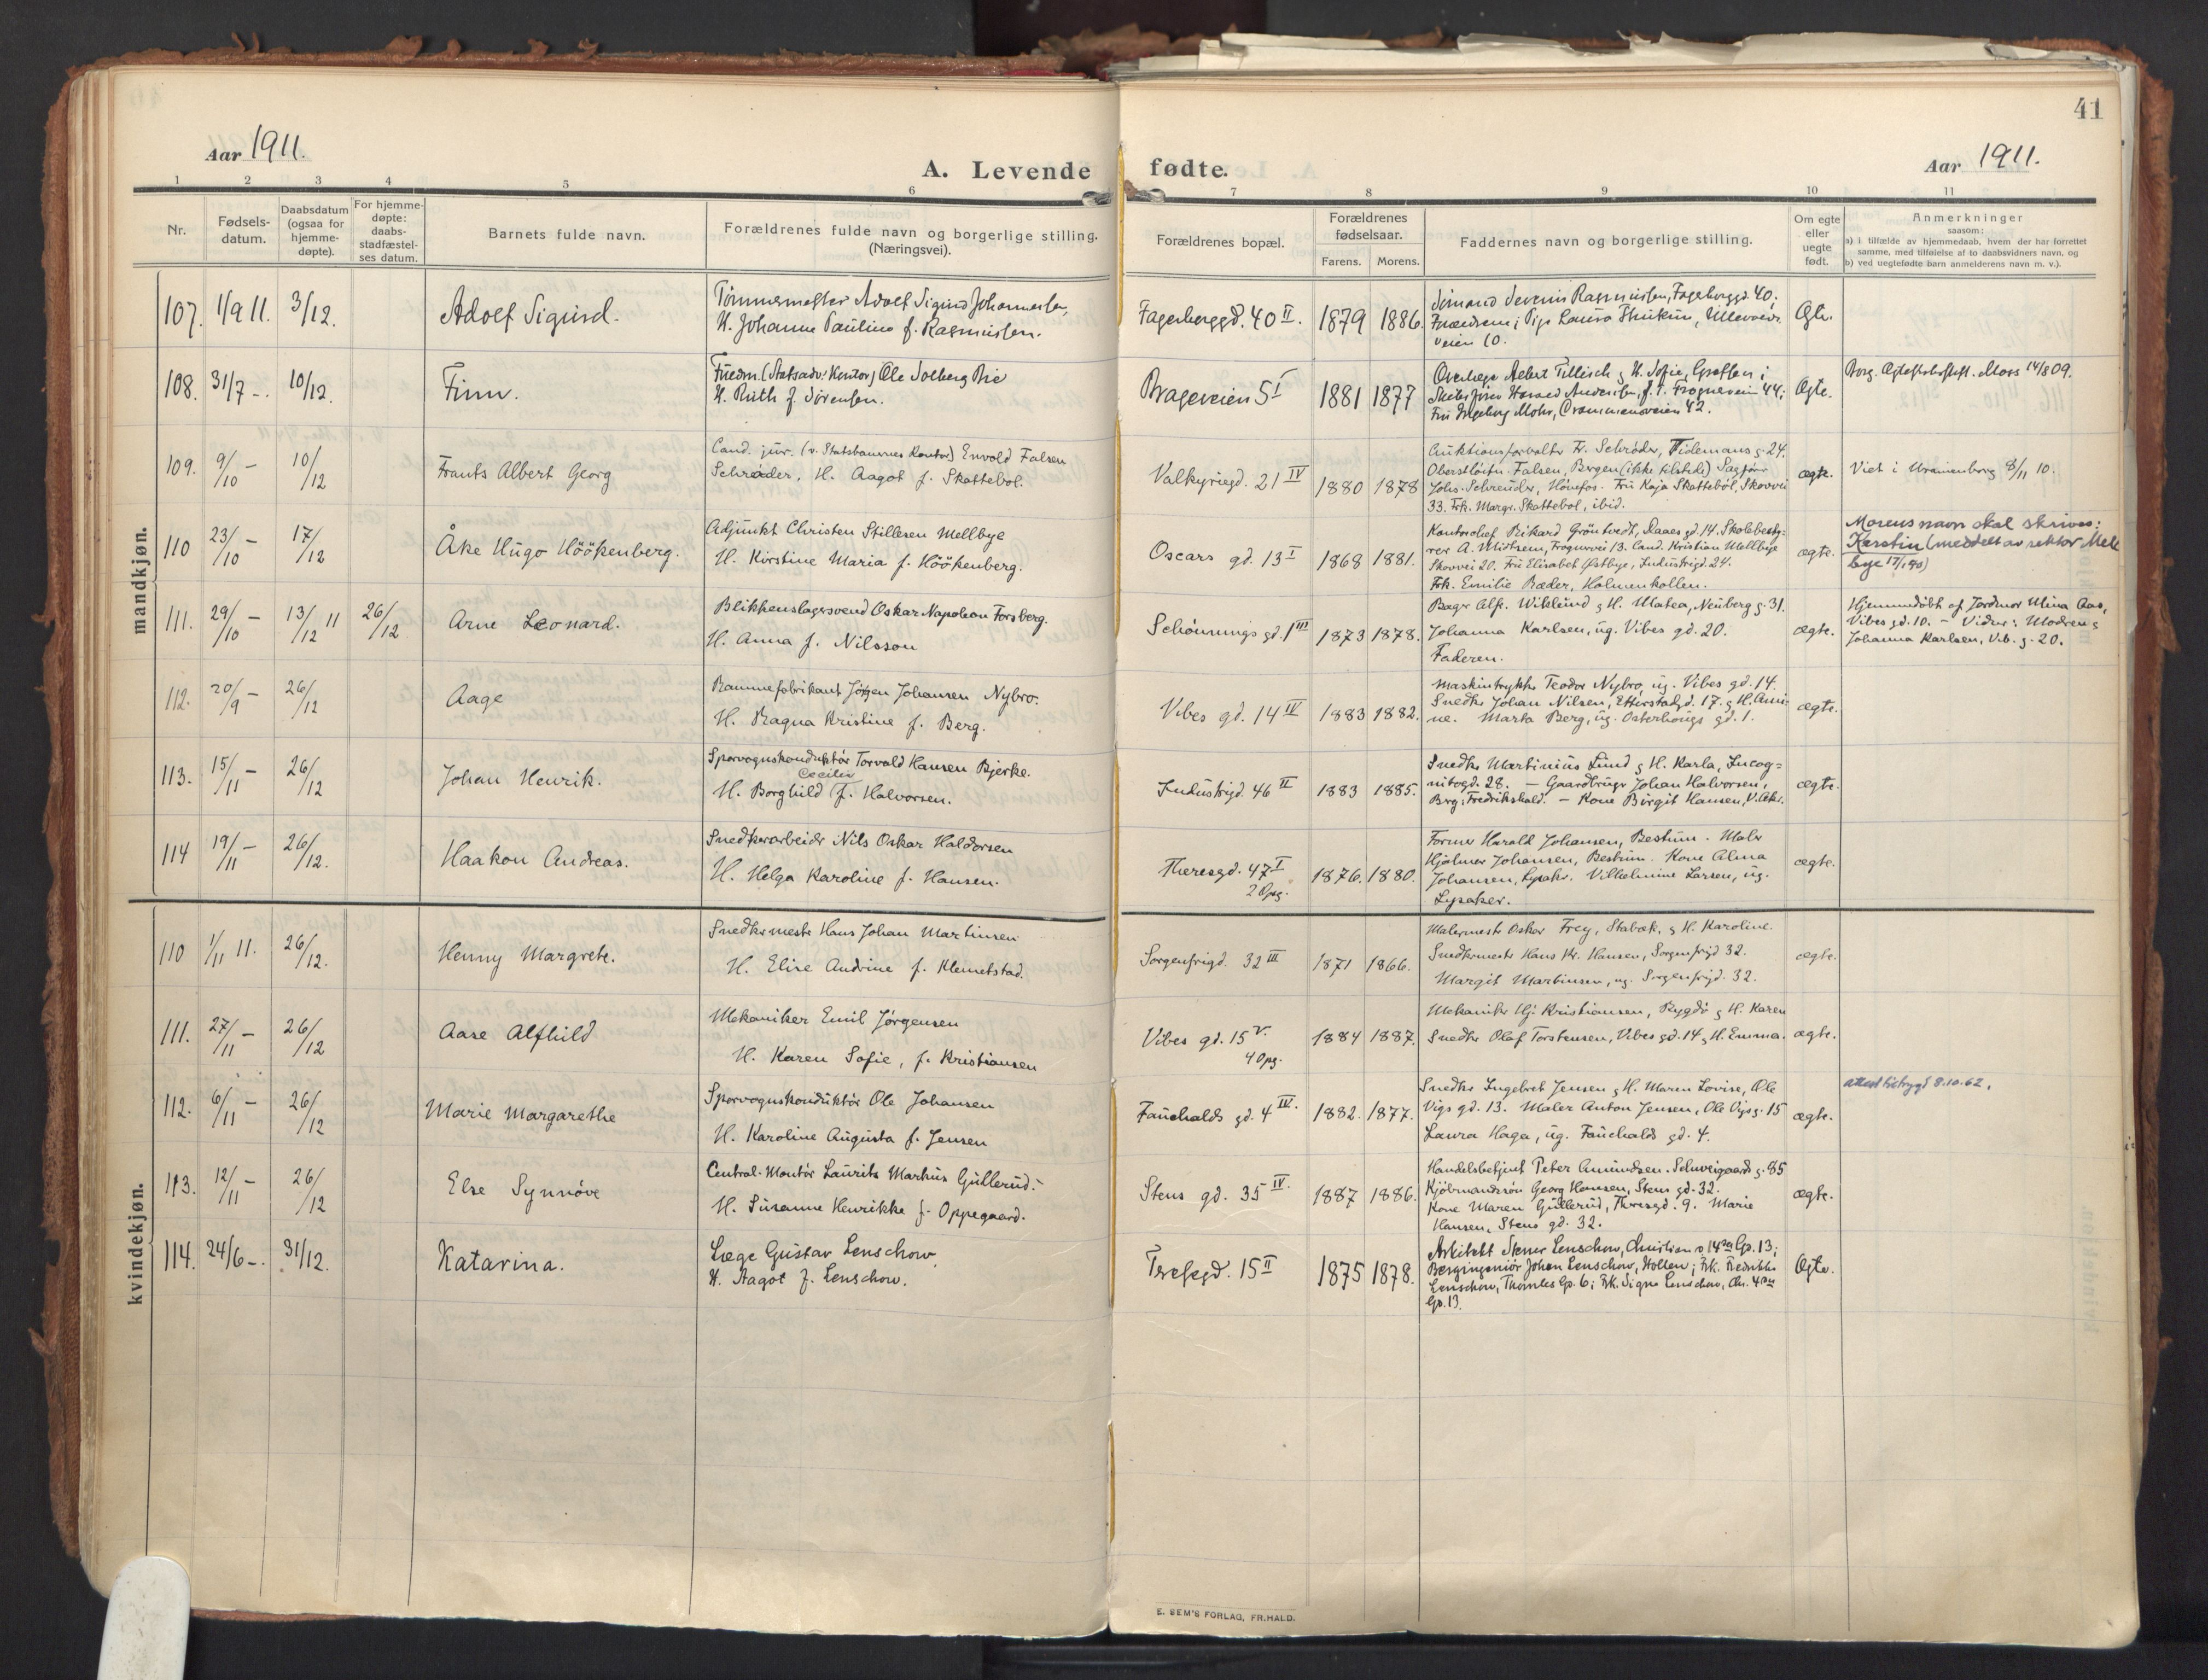 41
Aar 1911.
A. Levende fødte.
Aar 1911.
1 2 3 4 5 6 7 8 9 10 11
Nr.
Fødsels-
datum.
Daabsdatum
(ogsaa for
hjemme-
døpte).
For hjemme-
døpte:
daabs-
stadfæstel-
ses datum.
Barnets fulde navn.
Forældrenes fulde navn og borgerlige stilling.
(Næringsvei).
Forældrenes bopæl.
Forældrenes
fødselsaar.
Farens. Morens.
Faddernes navn og borgerlige stilling.
Om egte
eller
uegte
født.
Anmerkninger
saasom:
a) i tilfælde av hjemmedaab, hvem der har forrettet
samme, med tilføielse af to daabsvidners navn, og
b) ved uegtefødte barn anmelderens navn m. v.).
mandkjøn.
107. 1/9 11. 3/12. Adolf Sigurd.
Tømmermester Adolf Sigurd Johannessen,
H. Johanne Pauline f. Rasmussen.
Fagerborggd. 40 II. 1879 1886.
Severin Rasmussen, Fagerborggd. 40;
Pige Laura Ullevaals
veien 10.
Egte.
108. 31/7 -. 10/12. Finn.
(Statsadv. Kontor) Ole Solberg
H. Ruth f. Sørensen.
Brageveien 5 I 1881 1877
Overlæge Albert Tillisch & H. Sofie,
Harald Andersen, Frogneveien 44;
Fru Ingeborg Mohr, Drammensveien 42.
Egte.
Moss 14/8 09.
109. 9/10 - 10/12 Frants Albert Georg
Cand. jur. (v. Statsbanernes Kontor) Envold Falsen
Schrøder, H. Aagot f. Skattebøl.
Valkyriegd. 21 IV 1880 1878
Auktionsforvalter Fr. Schrøder, Tidemans g. 24.
Oberstløitn. Falsen, Bergen (ikke tilstede) Sagfører
Johs. Schrøder, Hønefos. Fru Kaja Skattebøl, Skovvei
33. Frk. Margr. Skattebøl, ibid.
ægte.
Viet i Uranienborg 8/11 10.
110 23/10 - 17/12 Åke Hugo Höökenberg.
Adjunkt Christen Stillesen Mellbye
H. Kirstine Maria f. Höökenberg.
Oscars gd. 13 I 1868 1881.
Kontorchef Rikard Gröntvedt, Staaes gd. 14. Skolebesty-
rer A. Midtsem, Frognervei 13. Cand. Kristian Mellbye
Skovvei 20. Fru Elisabet Østbye, Industrigd. 24.
Frk. Emilie Ræder, Holmenkollen.
ægte.
Morens navn skal skrives:
Kerstin (meddelt av rektor Mell
bye 17/1 40)
111. 29/10 - 13/12 11 26/12 Arne Leonard.
Blikkenslagersvend Oskar Napoleon Forsberg.
H. Anna f. Nilsson
Schønnings gd. 1 III 1873 1878.
Bager Alf. Wiklund & H. Matea, Neuberg g. 31.
Johanna Karlsen, ug. Vibes gd. 20.
Faderen.
ægte.
Hjemmedøbt af Jordmor Mina Aas,
Vibes gd. 10. - Vidner: Modren &
Johanna Karlsen, Vib. g. 20.
112. 20/9 - 26/12 Aage
Rammefabrikant Jørgen Johansen Nybro.
H. Ragna Kristine f. Berg.
Vibes gd. 14 IV 1883 1882.
Maskintrykker Teodor Nybro, ug. Vibes gd. 14.
Snedker Johan Nilsen, Etterstadgd. 17. & H. Ami-
ne. Marta Berg, ug. Osterhaugs gd. 1.
ægte.
113. 15/11 - 26/12 Johan Henrik.
Sporvognskonduktør Torvald Hansen Bjerke.
Cecilie
H. Borghild f. Halvorsen.
Industrigd. 46 II 1883 1885.
Snedker Martinius Lund & H. Karla, Incog-
nitogd. 28. - Gaardbruger Johan Halvorsen,
Berg, Fredrikshald. - Kone Birgit Hansen, V. Aker.
ægte.
114 19/11 - 26/12. Haakon Andreas.
Snedkerarbeider Nils Oskar Haldorsen
H. Helga Karoline f. Hansen.
Theresgd. 47 I
2 Opg.
1876. 1880.
Former Harald Johansen, Bestum. Maler
Hjalmar Johansen, Bestum. Kone Alma
Johansen, Lysaker. Vilhelmine Larsen, ug.
Lysaker.
ægte.
kvindekjøn.
110 1/11 11. 26/12. Henny Margrete.
Snedkermester Hans Johan Martinsen
H. Elise Andrine f. Klemetstad.
Sorgenfrigd. 32 III 1871 1866.
Malermester Oskar Frey, Stabæk, & H. Karoline.
Snedkermester Hans Kr. Hansen, Sorgenfrigd 32.
Margit Martinsen, ug. Sorgenfrigd. 32.
ægte.
111. 27/11 - 26/12 Aase Alfhild
Mekaniker Emil Jørgensen
H. Karen Sofie, f. Kristiansen
Vibes gd. 15 V.
4 Opg.
1884 1887.
Mekaniker Hj. Kristiansen, Bygdø & H. Karen
Snedker Olaf Torstensen, Vibes gd. 14 & H. Emma.
ægte.
112. 6/11 - 26/12 Marie Margarethe
Sporvognskonduktør Ole Johansen
H. Karoline Augusta f. Jensen
Fauchalds gd. 4 IV. 1882. 1877.
Snedker Ingebret Jensen & H. Maren Lovise, Ole
Vigs gd. 13. Maler Anton Jensen, Ole Vigs g. 15
Laura Haga, ug. Fauchalds gd. 4.
ægte.
attest trygd 8.10.62.
113. 12/11 - 26/12 Else Synnøve
Central-Montør Laurits Markus Gullerud.
H. Susanne Henrikke f. Oppegaard.
Stens gd. 35 IV. 1887 1886.
Handelsbetjent Peter Amundsen. Schweigaards g. 85
Kjøbmandssøn Georg Hansen, Stens gd. 32.
Kone Maren Gullerud, Theresgd. 9. Marie
Hansen, Stens gd. 32.
ægte.
114. 24/6 -. 31/12. Katarina.
Læge Gustav Lenschow,
H. Aagot f. Lenschow.
Theresegd. 15 II 1875 1878.
Arkitekt Lenschow, Christian d 14des Gp. 13;
Bergingeniør Johan Lenschow, Hollen; Frk. Fredrikke
Lenschow, Thomles Gp. 6; Frk. Signe Lenschow, Chr. 4des
Gp. 13.
Egte.
E. SEM'S FORLAG, FR.HALD.